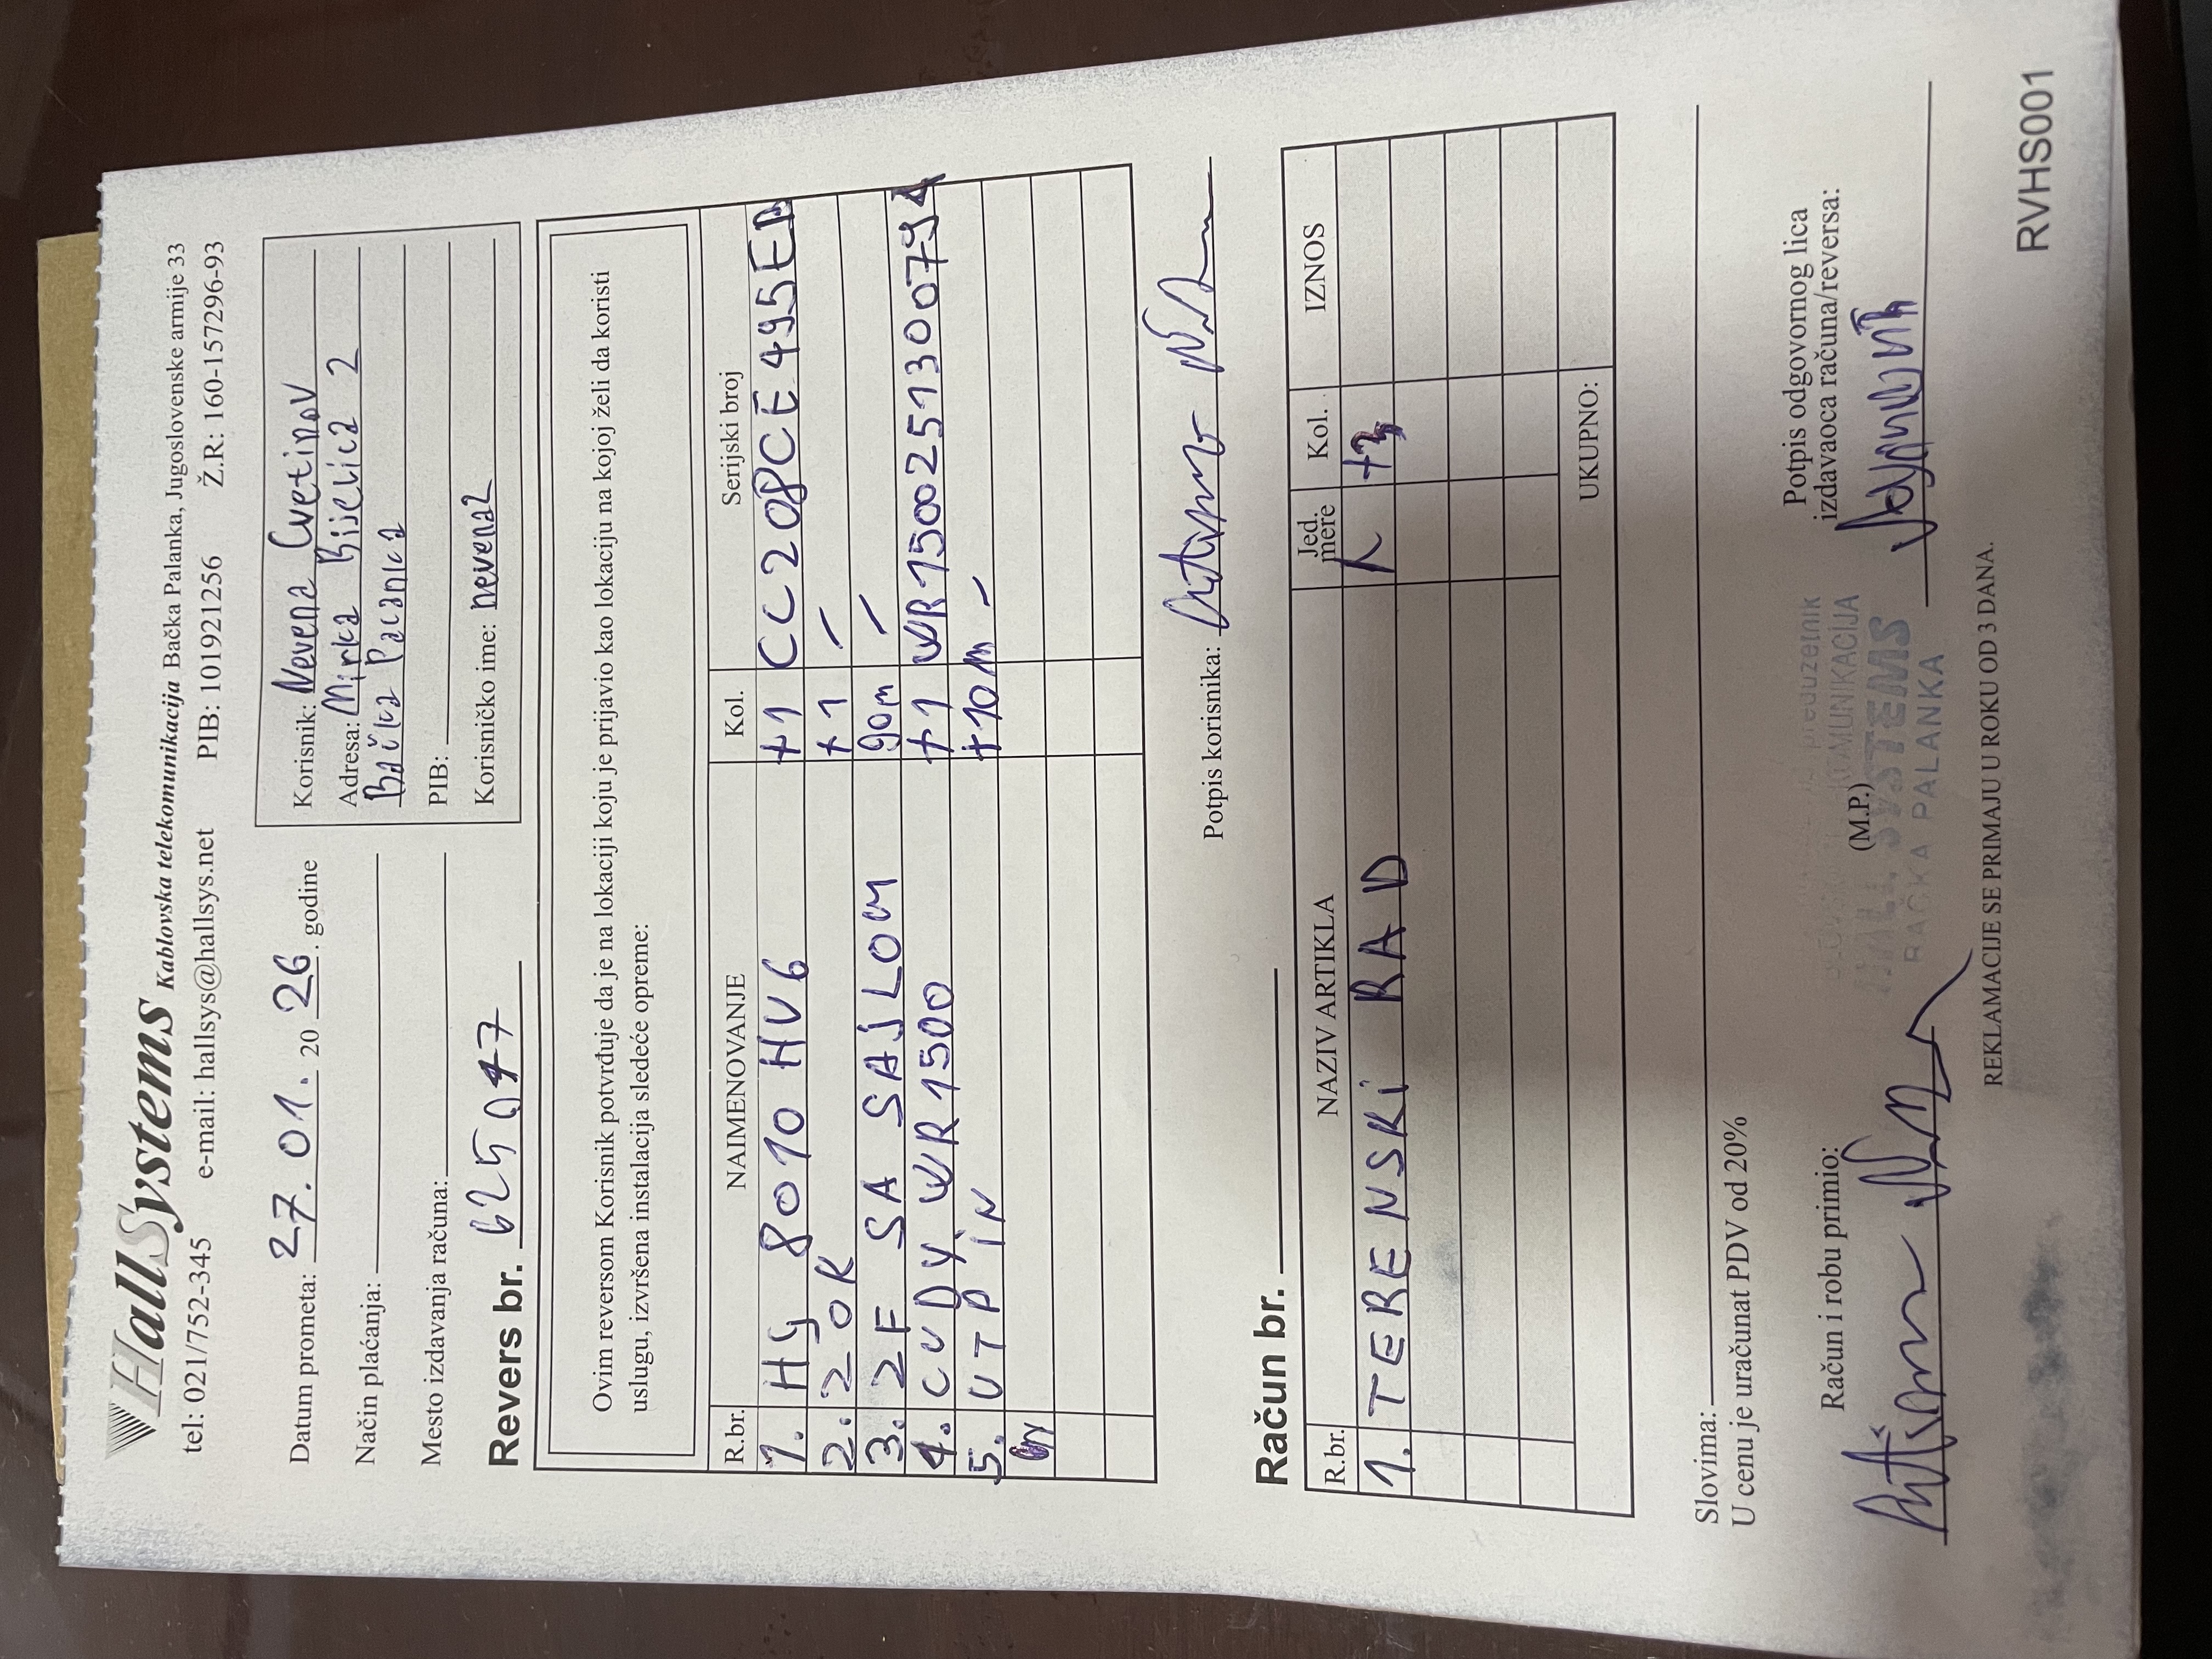 HallSystems Kablovska telekomunikacija Bačka Palanka, Jugoslovenske armije 33
tel: 021/752-345 e-mail: hallsys@hallsys.net PIB: 101921256 Ž.R: 160-157296-93
Datum prometa: 27. 01. 20 26. godine
Način plaćanja:
Mesto izdavanja računa:
Revers br.
Korisnik: Nevena Cvetinov
Adresa: Mirka Bijelica 2
Bačka Palanka
PIB:
Korisničko ime: nevena2
Ovim reversom Korisnik potvrđuje da je na lokaciji koju je prijavio kao lokaciju na kojoj želi da koristi
uslugu, izvršena instalacija sledeće opreme:
R.br. NAIMENOVANJE Kol. Serijski broj
1. HG 8010 HV6 +1 CC208CE495ED
2. ZOK +1 /
3. 2F SA SAJLOM 90m /
4. CUDY WR1500 +1
5. UTP IN +10m /
Potpis korisnika:
Račun br.
R.br. NAZIV ARTIKLA Jed. mere Kol. IZNOS
1. TERENSKI RAD +3
UKUPNO:
Slovima:
U cenu je uračunat PDV od 20%
Račun i robu primio:
(M.P.)
Potpis odgovornog lica
izdavaoca računa/reversa:
SYSTEMS
BAČKA PALANKA
REKLAMACIJE SE PRIMAJU U ROKU OD 3 DANA.
RVHS001